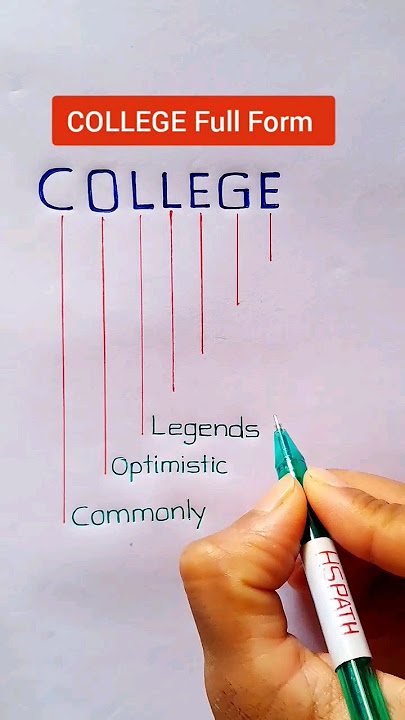 COLLEGE Full Form
COLLEGE
Legends
Optimistic
Commonly
HSPATH